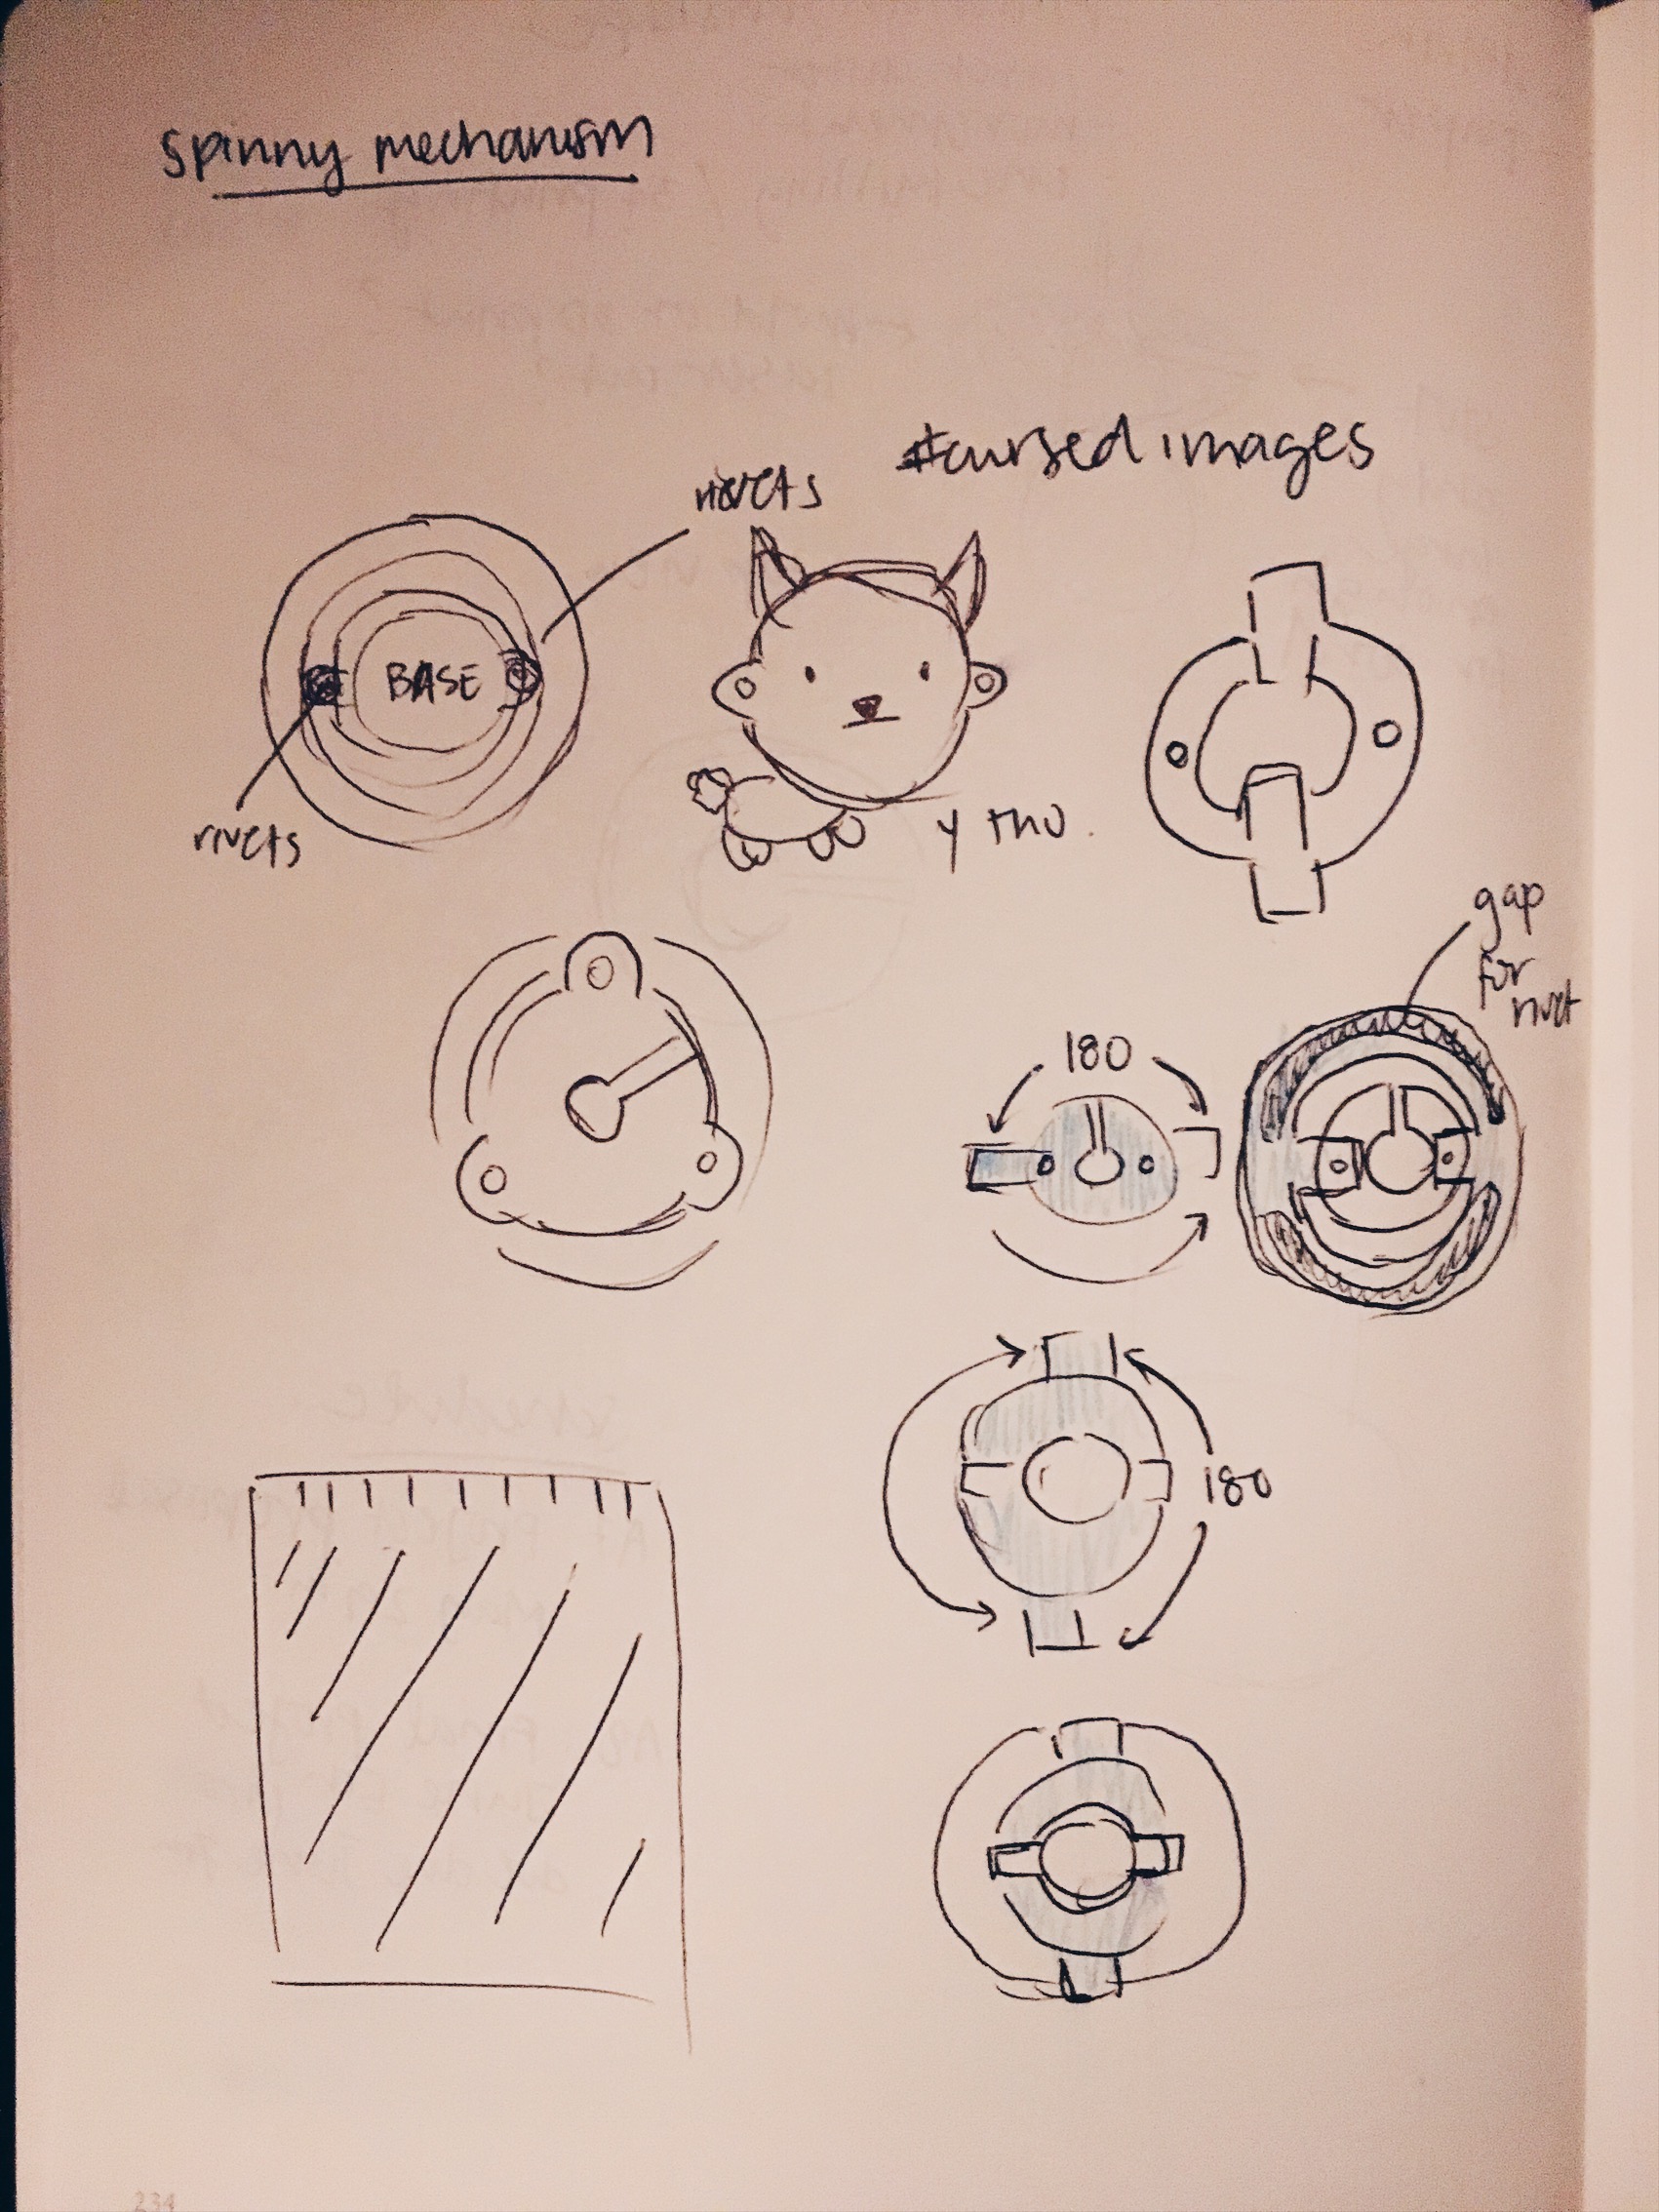 spinny mechanism
#cursed images
rivets
BASE
rivets
y tho.
gap
for
rivet
180
180
234